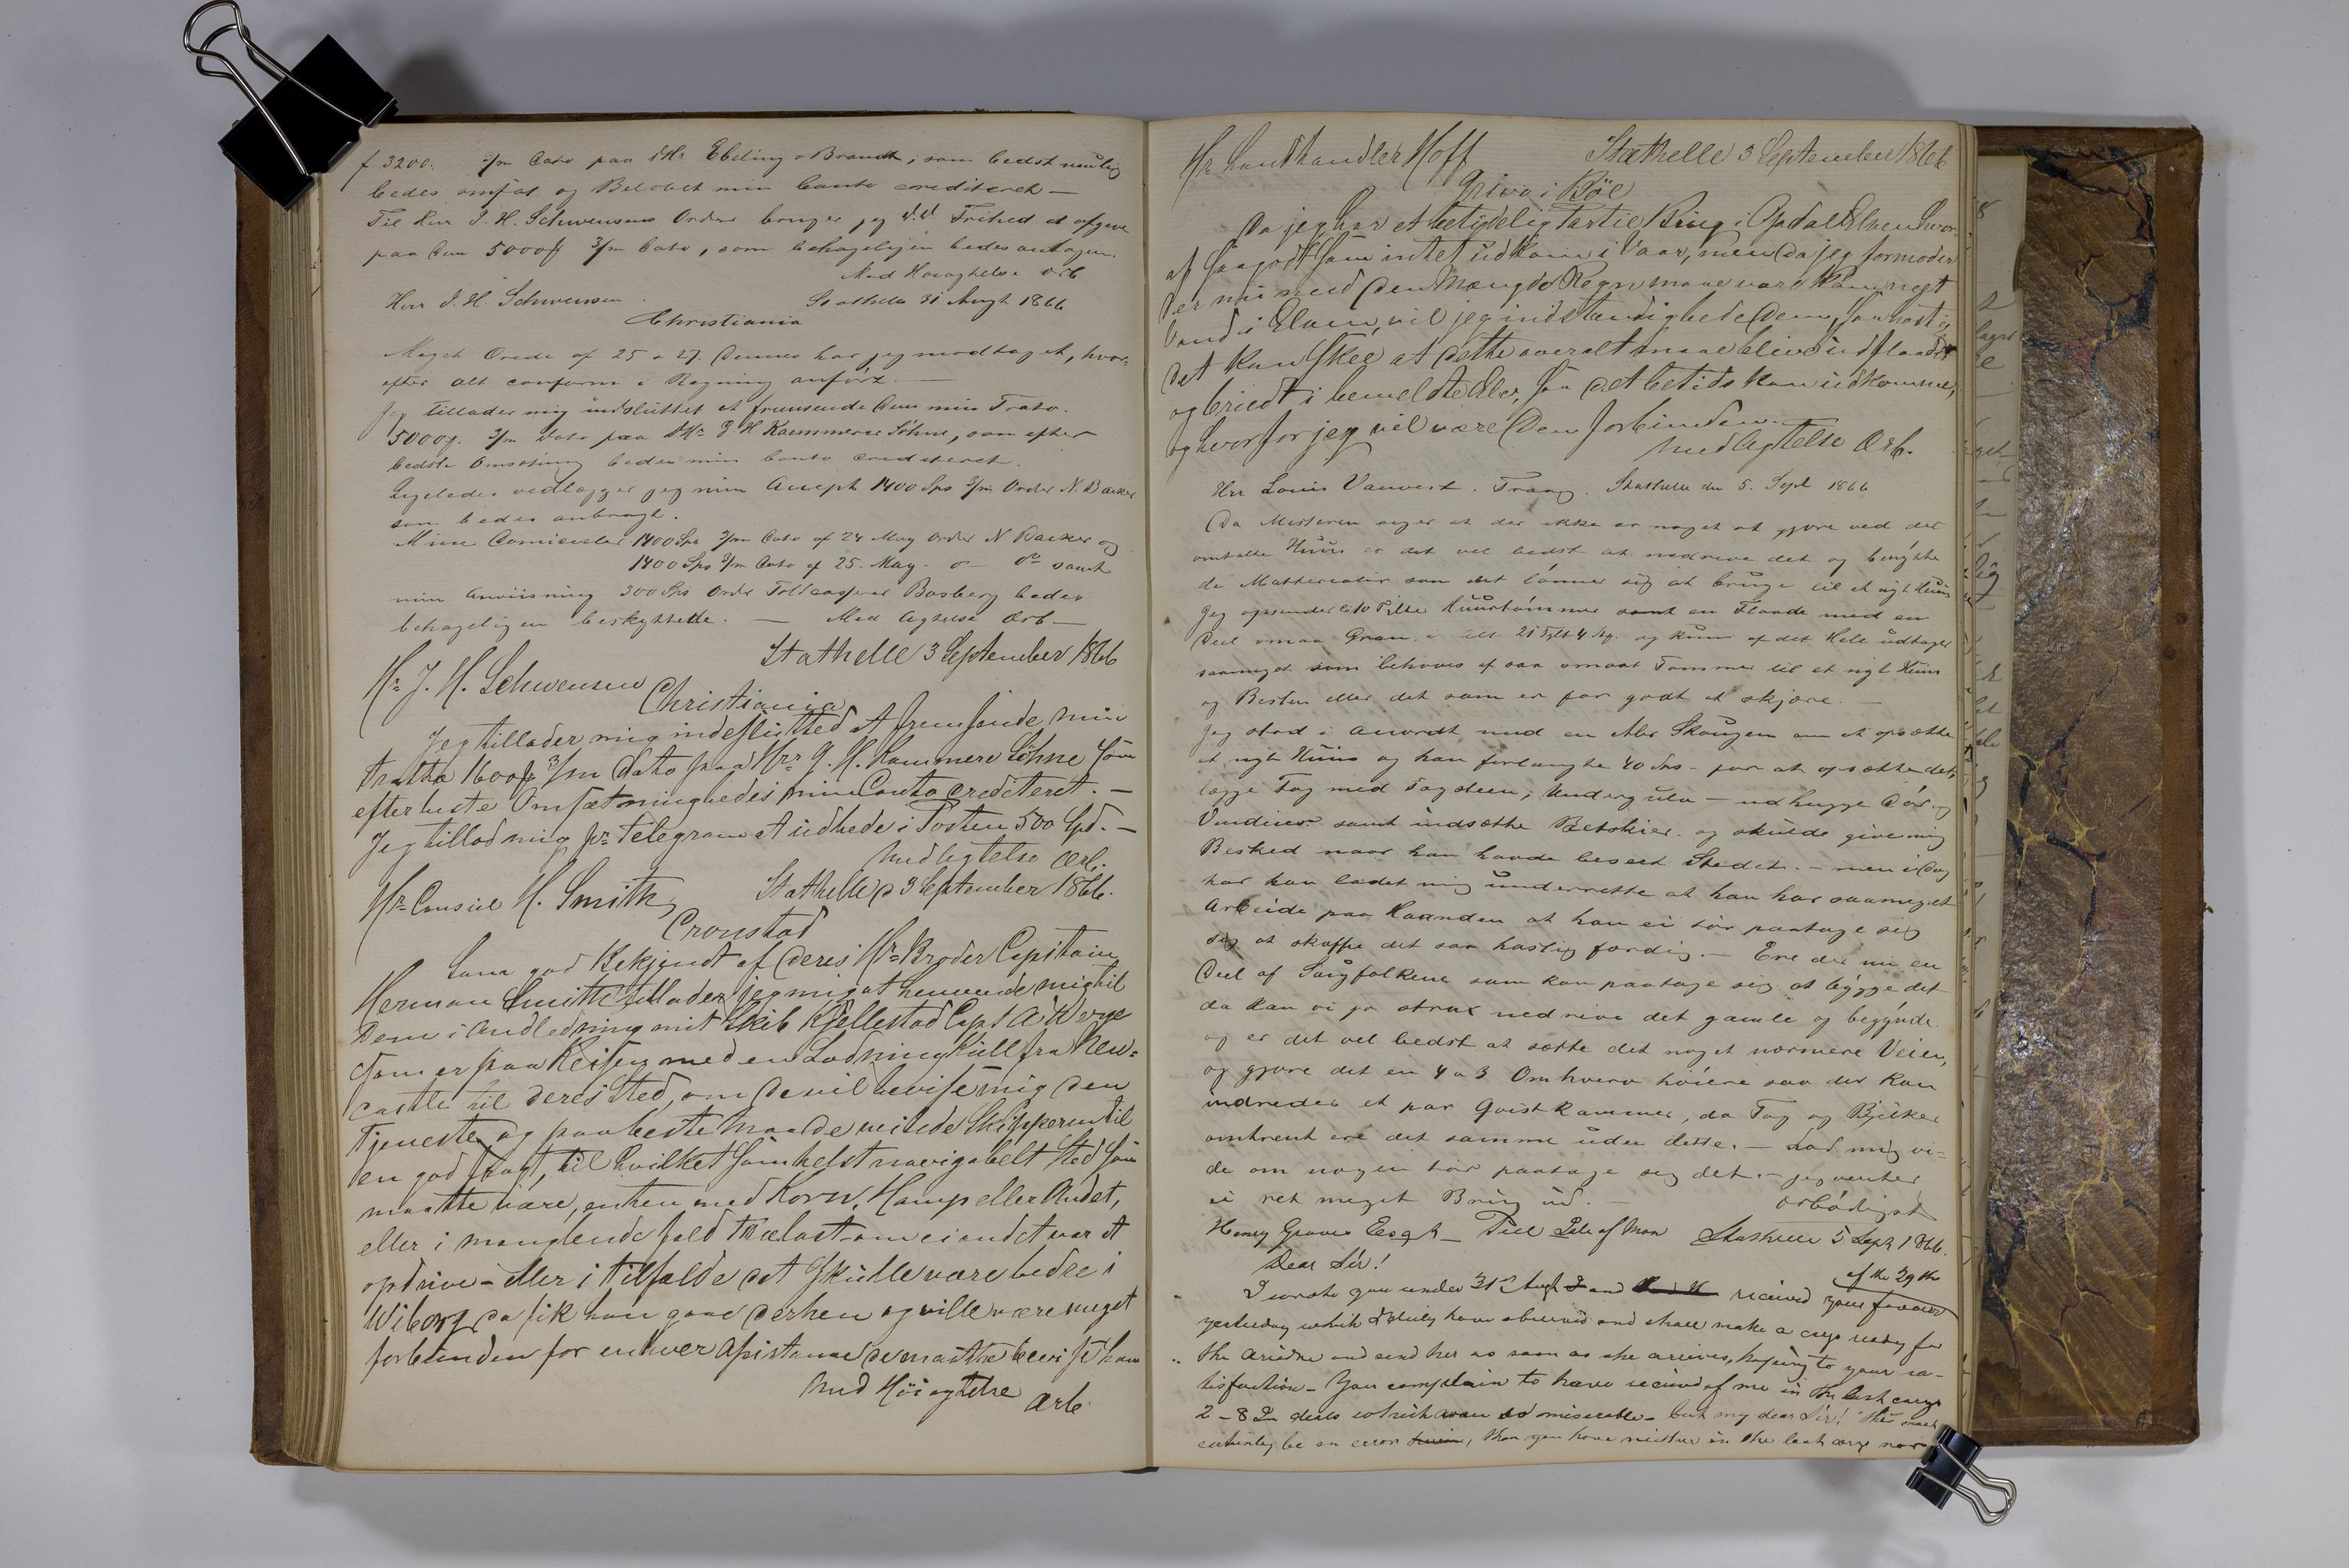 f 3200. 3/m dato paa d'Hr Ebeling & Brandt, som bedst muulig
bedes omsat og Beløbet min Conto crediteret —
Til Herr J. H. Schwensens Ordre bruger jeg d.d. Frihed at afgive
paa Dem 5000f 3/m dato, som behageligen bedes antagen.
Med Høiagtelse Ærb
Herr J. H. Schwensen. Stathelle 31 Augt 1866
Christiania
Meget Ærede af 25 & 27 Dennes har jeg modtaget, hvor-
efter alt conform i Regning anført. —
Jeg tillader mig indsluttet at fremsende Dem min Tratte.
5000f. 3/m dato paa d'Hr G. H. Kaemmerer Söhne, som efter
bedste Omsætning bedes min Conto crediteret.
Ligeledes vedlægger jeg min Accept 1400 Sps 3/m Ordre N. Backer
som bedes anbragt.
Mine Domicieler 1400 Sps 3/m dato af 24 May Ordre N Backer og
1400 Sps 3/m dato af 25. May. o— do samt
min Anviisning 300 Sps Ordre Toldcasserer Basberg bedes
behageligen beskyttede. — Med Agtelse Ærb —
Stathelle 3 September 1866
Hr J. H. Schwensen
Christiania
Jeg tillader mig indeslutted at fremsende min
tratta 1600f 3/m dato paa Hrr G. H. Kammerer Söhne som
efter beste Omsætning bedes min Conto crediteret. —
Jeg tillod mig pr Telegram at udbede i Posten 500 Spd. —
Med Agtelse Ærb.
Hr Consul H. Smith, Stathelle d 3 September 1866.
Cronstad
Som god Bekjendt af Deres Hr Broder Capitain
Herman Smith tillader jeg mig at henvende mig til
Dem i Andledning mit Skib Kjellestad Capt A.
som er paa Reisen med en Ladning Kull fra New-
castle til Deres Sted, om De vil bevise mig den
Tjeneste og paa beste Maade veilede Skipperen til
en god Fragt, til hvilket somhelst navigabelt Sted som
maatte være, enten med Korn, Hamp eller Andet,
eller i manglende fald Trælast om ei andet var at
opdrive — eller i Tilfælde det skulle være bedre i
Wiborg, da fik han gaae derhen og ville være meget
forbunden for enhver Asistanse De maatte bevise ham
Med Høiagtelse
Ærb
Hr Landhandler Hoff Stathelle 3 September 1866
Griva i Böe
Da jeg har et betydelig Partie Bring i Opdal Elven hvor-
af saagodt som intet udkom i Vaar, men da jeg formoder
der nu med den Mængde Regn maae være kommet
Vand i Elven, vil jeg indstændig bede Dem, saa hastig
det kan skee at dette overalt maae blive udflaadet
og briedt i bemeldte Elv, saa det betids kan udkomme,
og hvorfor jeg vil være Dem forbunden —
Med Agtelse Ærb.
Herr Louis Vauvert. Traag. Stathelle den 5. Sept 1866
Da Mesteren siger at der ikke er noget at gjøre ved det
omtalte Huus er det vel bedst at nedrive det og benytte
de Matterialier som det lønner sig at bruge til et nyt Huus
Jeg opsender Ca 10 Tylter Huustømmer samt en Flaade med en
Deel smaa Gran. i alt 21 Tylt 4 St. og kun af det Hele udtages
saameget som behøves af saa smaat Tømmer til et nyt Huus
og Resten eller det som er for godt at skjære. —
Jeg stod i Accordt med en Abr Skougen om at opsætte
et nyt Huus og han forlangte 40 Sps — for at opsætte det,
lægge Tag med Tagsteen, Undergulv — udhugge Dør og
Vinduer samt indsætte Betskier. og skulde give mig
Besked naar han havde beseet Stedet. — men i Dag
har han ladet mig underrette at han har saameget
Arbeide paa Haanden at han ei tør paatage sig
sig at skaffe det saa hastig færdig. — Ere der nu en
Deel af Saugfolkene som kan paatage sig at bygge det
da kan vi jo strax nedrive det gamle og begynde.
og er det vel bedst at sætte det noget nærmere Veien,
og gjøre det en 4 a 3 Omhverv høiere saa der kan
indredes et par Qvistkammer, da Tag og Bjelker
omtrent ere det samme uden dette. — Lad mig vi-
de om nogen tør paatage sig det. — jeg venter
ei ret meget Bring ud. — ærbødigst
Henry Graves Esqr — Peel Isle of Man Stathelle 5 Sept 1866.
Dear Sir!
I wrote you under 31st Augt and received your favour of the 29th
yesterday which I duly have observed and shall make a cargo ready for
the Ariadne and send her as soon as she arrives, hoping to your sa-
tisfaction — You complain to have received of me in the last cargo
2 — 8 In deals which was so miserable — but my dear Sir! this must
certainly be an error, than you have neither in the last cargo nor